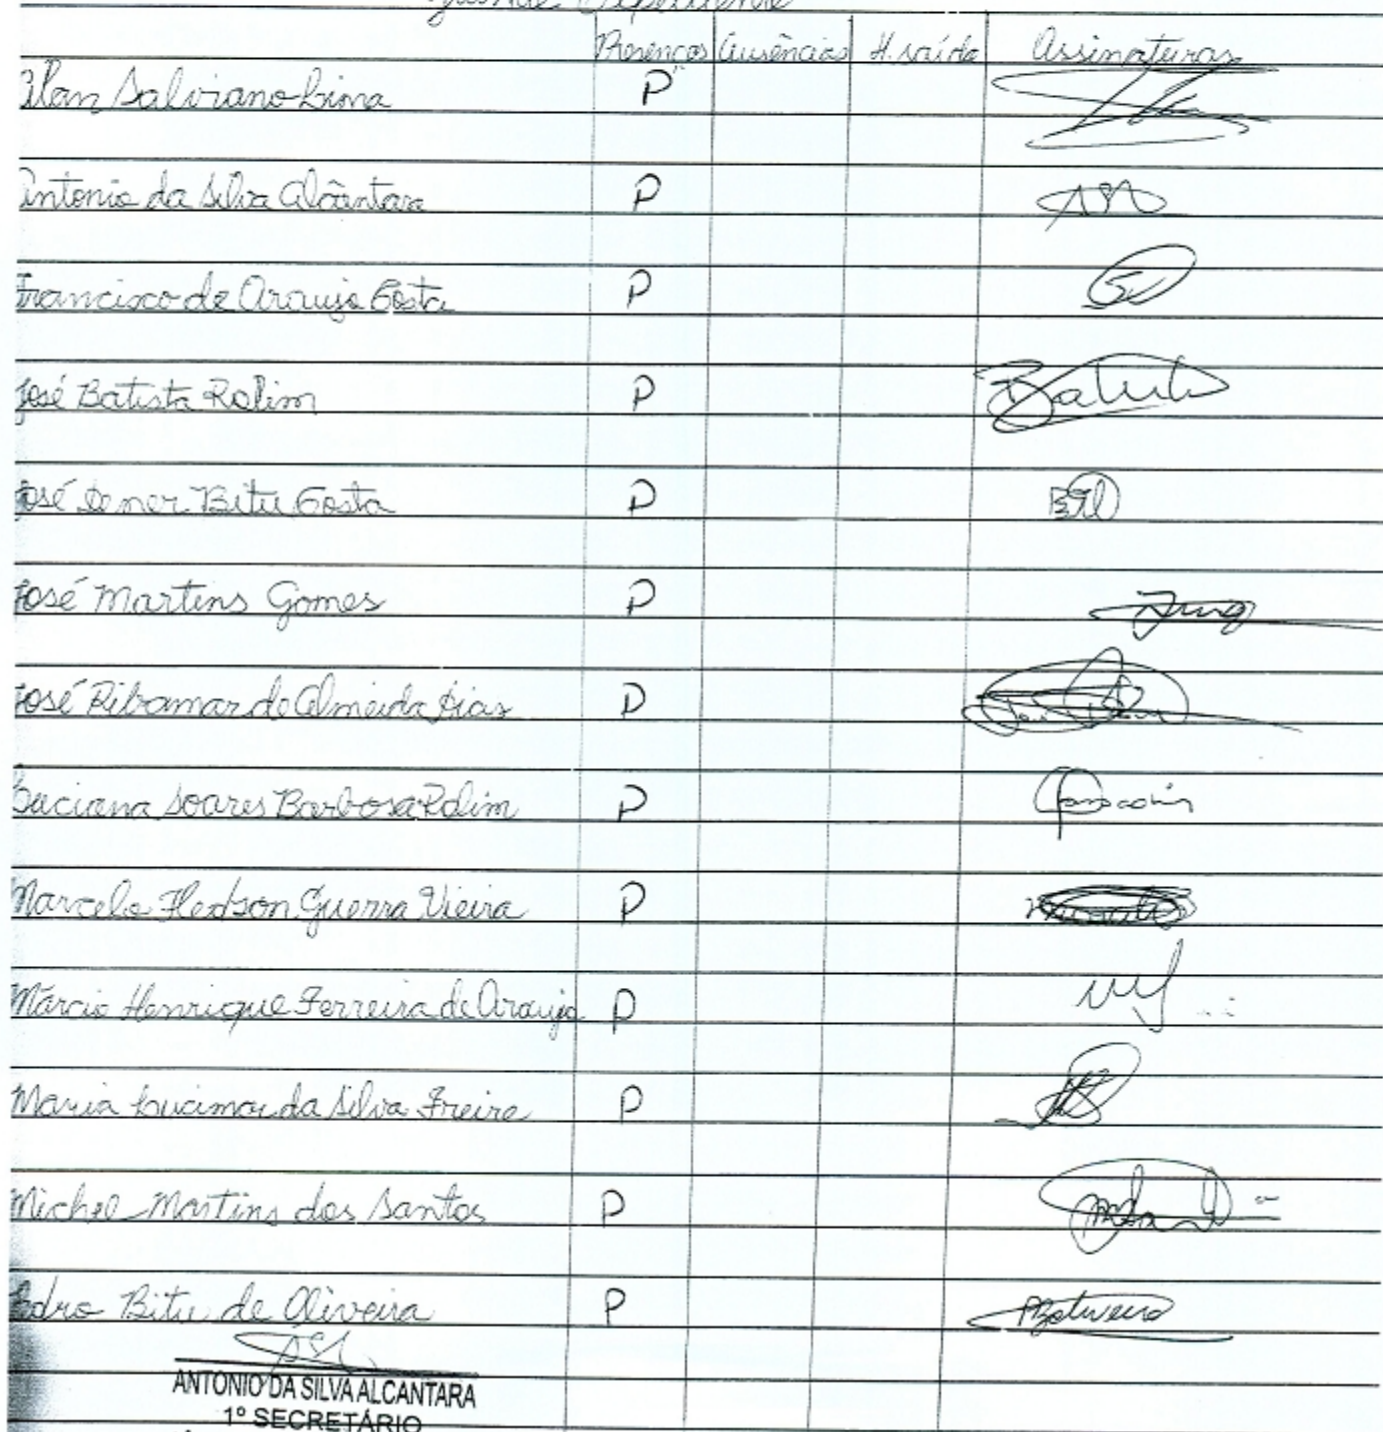 Grande Expediente
Presenças Ausências H. saída Assinaturas
Alan Salviano Lima P
Antonio da Silva Alcântara P
Francisco de Araujo Costa P
José Batista Rolim P Batista
José Demer Bitu Costa P
José Martins Gomes P
José Ribamar de Almeida Dias P
Luciana Soares Barbosa Rolim P
Marcelo Hedson Guerra Vieira P
Márcio Henrique Ferreira de Araujo P
Maria Lucimar da Silva Freire P
Michel Martins dos Santos P
Pedro Bitu de Oliveira P
ANTONIO DA SILVA ALCANTARA
1º SECRETÁRIO